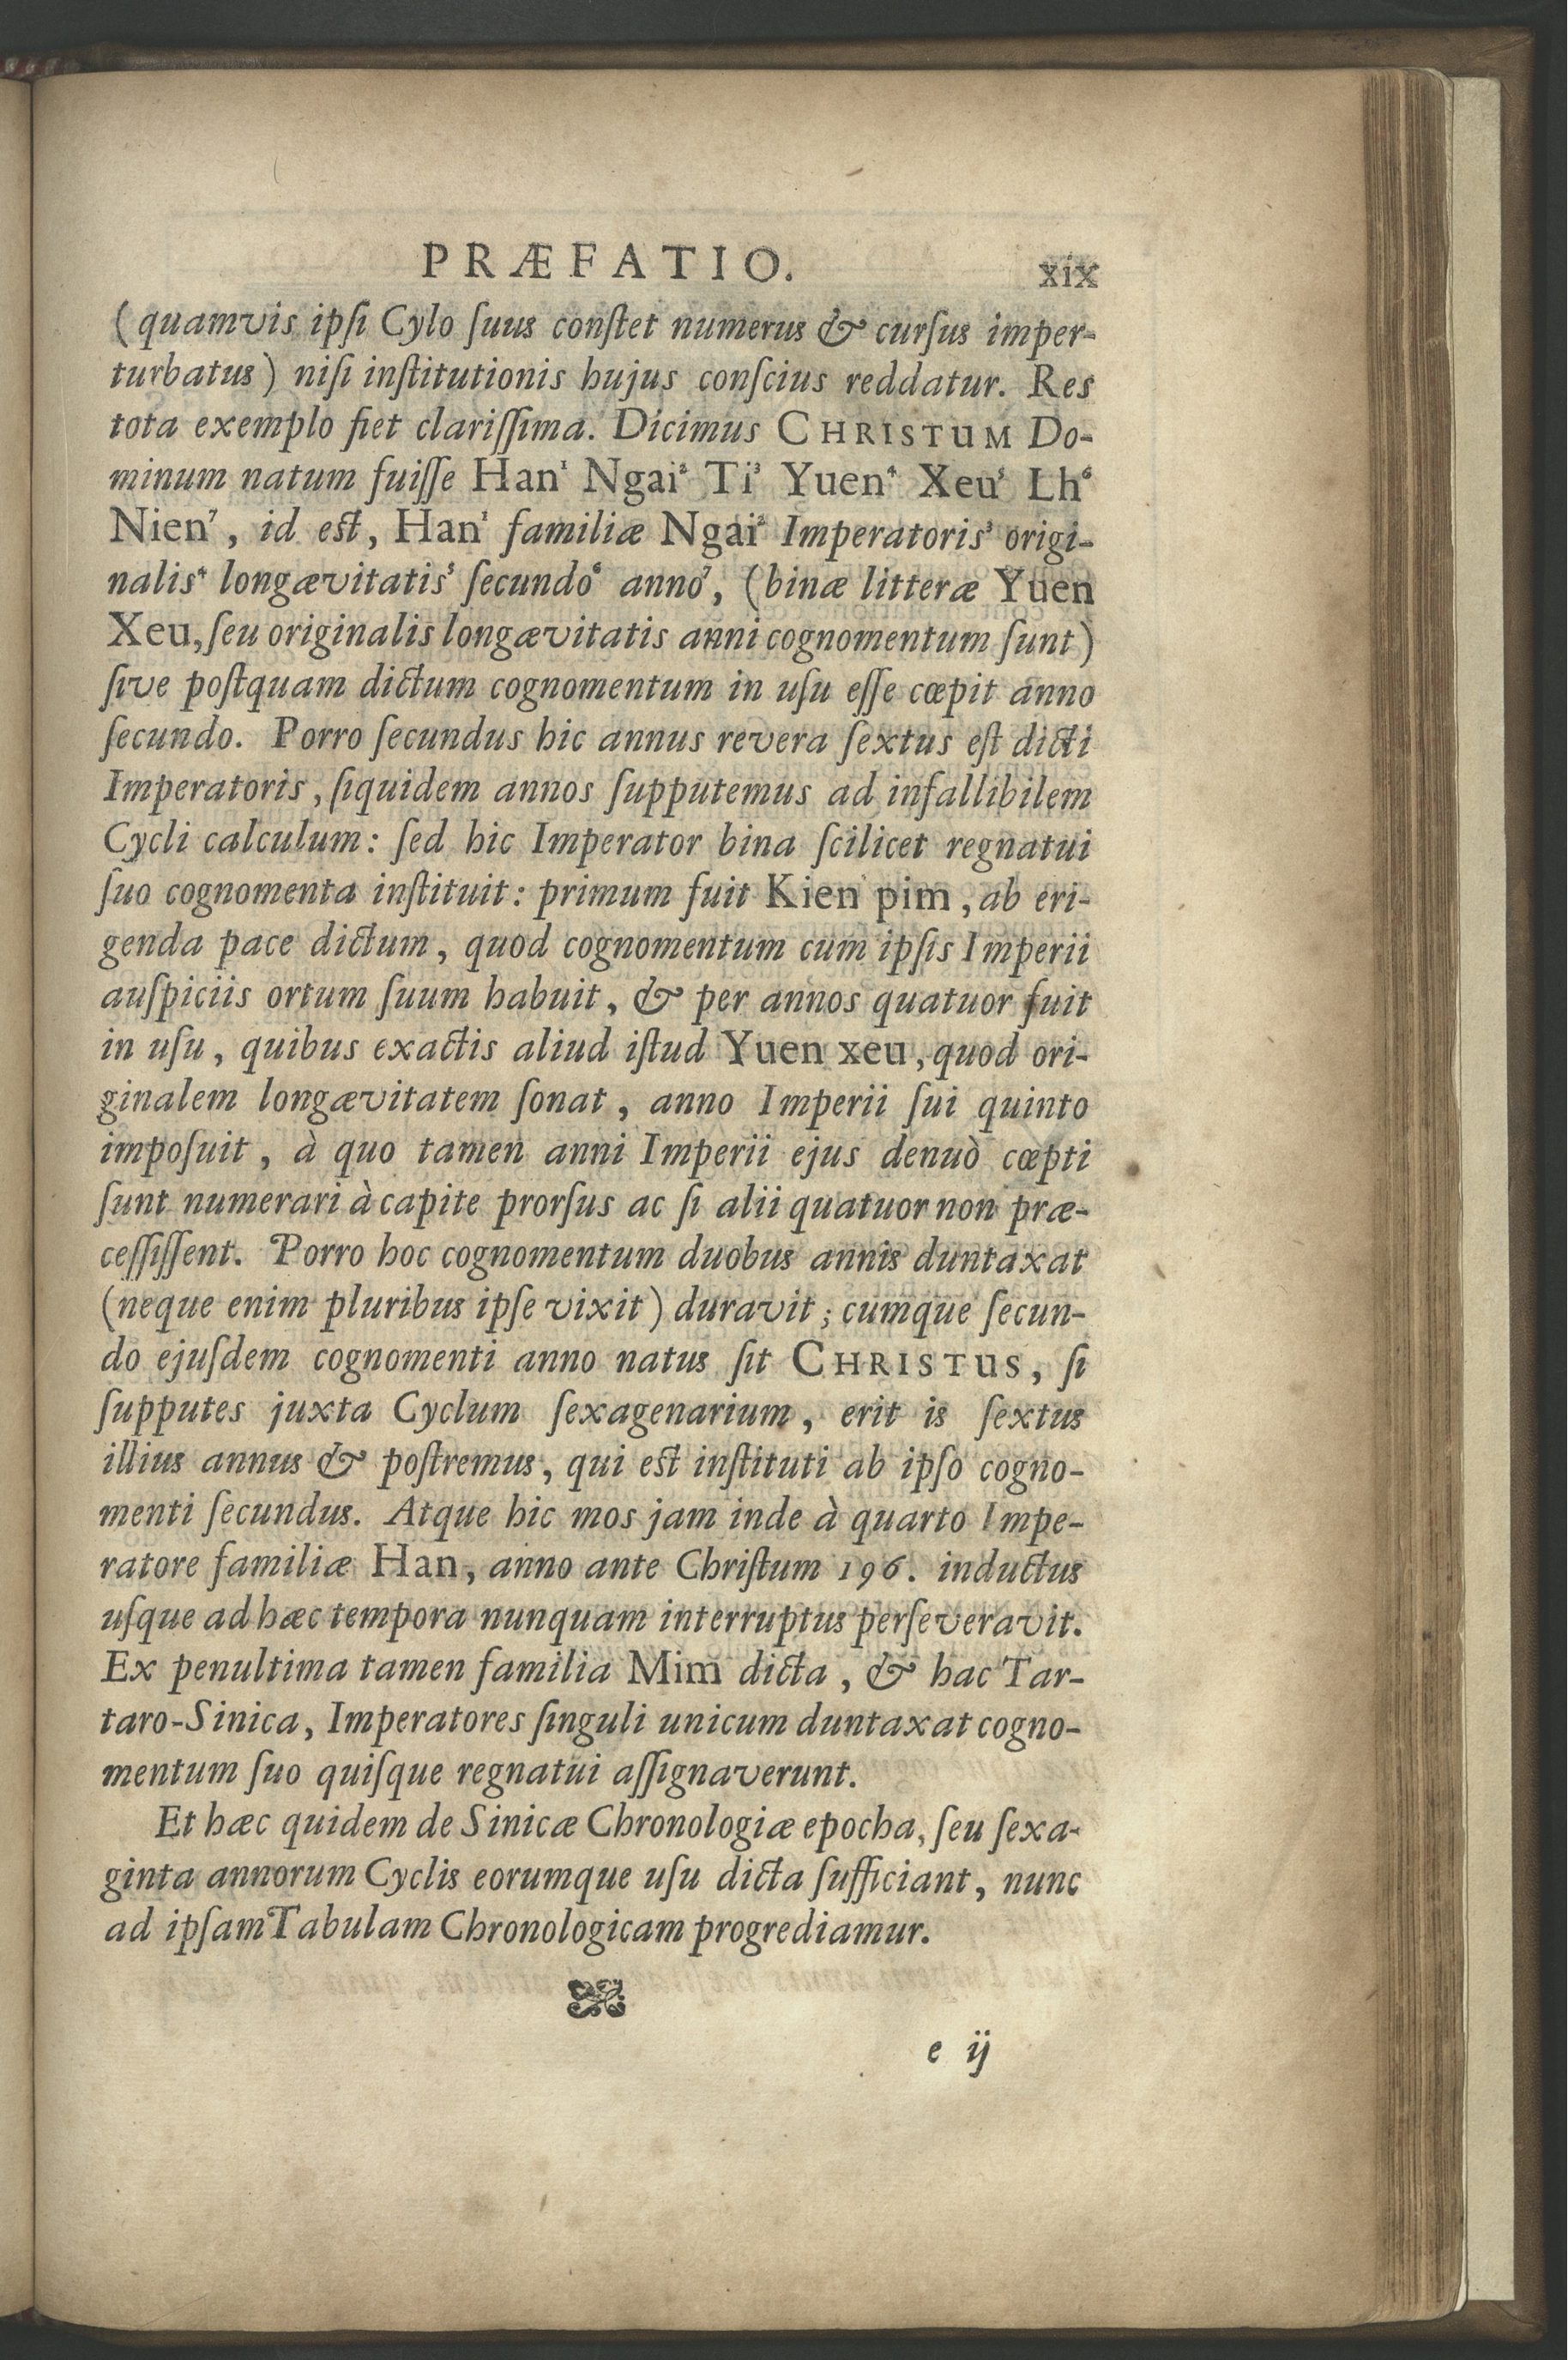 PRÆFATIO. xix
(quamvis ipſi Cylo ſuus conſtet numerus & curſus imper-
turbatus) niſi inſtitutionis hujus conſcius reddatur. Res
tota exemplo fiet clariſſima. Dicimus CHRISTUM Do-
minum natum fuiſſe Han¹ Ngai² Ti³ Yuen⁴ Xeu⁵ Lh⁶
Nien⁷, id est, Han¹ familiæ Ngai² Imperatoris³ origi-
nalis⁴ longævitatis⁵ ſecundo⁶ anno⁷, (binæ litteræ Yuen
Xeu, ſeu originalis longævitatis anni cognomentum ſunt)
ſive poſtquam dictum cognomentum in uſu eſſe cœpit anno
ſecundo. Porro ſecundus hic annus revera ſextus eſt dicti
Imperatoris, ſiquidem annos ſupputemus ad infallibilem
Cycli calculum: ſed hic Imperator bina ſcilicet regnatui
ſuo cognomenta inſtituit: primum fuit Kien pim, ab eri-
genda pace dictum, quod cognomentum cum ipſis Imperii
auſpiciis ortum ſuum habuit, & per annos quatuor fuit
in uſu, quibus exactis aliud iſtud Yuen xeu, quod ori-
ginalem longævitatem ſonat, anno Imperii ſui quinto
impoſuit, à quo tamen anni Imperii ejus denuò cœpti
ſunt numerari à capite prorſus ac ſi alii quatuor non præ-
ceſſiſſent. Porro hoc cognomentum duobus annis duntaxat
(neque enim pluribus ipſe vixit) duravit; cumque ſecun-
do ejuſdem cognomenti anno natus ſit CHRISTUS, ſi
ſupputes juxta Cyclum ſexagenarium, erit is ſextus
illius annus & poſtremus, qui est inſtituti ab ipſo cogno-
menti ſecundus. Atque hic mos jam inde à quarto Impe-
ratore familiæ Han, anno ante Chriſtum 196. inductus
uſque ad hæc tempora nunquam interruptus perſeveravit.
Ex penultima tamen familia Mim dicta, & hac Tar-
taro-Sinica, Imperatores ſinguli unicum duntaxat cogno-
mentum ſuo quiſque regnatui aſſignaverunt.
Et hæc quidem de Sinicæ Chronologiæ epocha, ſeu ſexa-
ginta annorum Cyclis eorumque uſu dicta ſufficiant, nunc
ad ipſam Tabulam Chronologicam progrediamur.
e ij